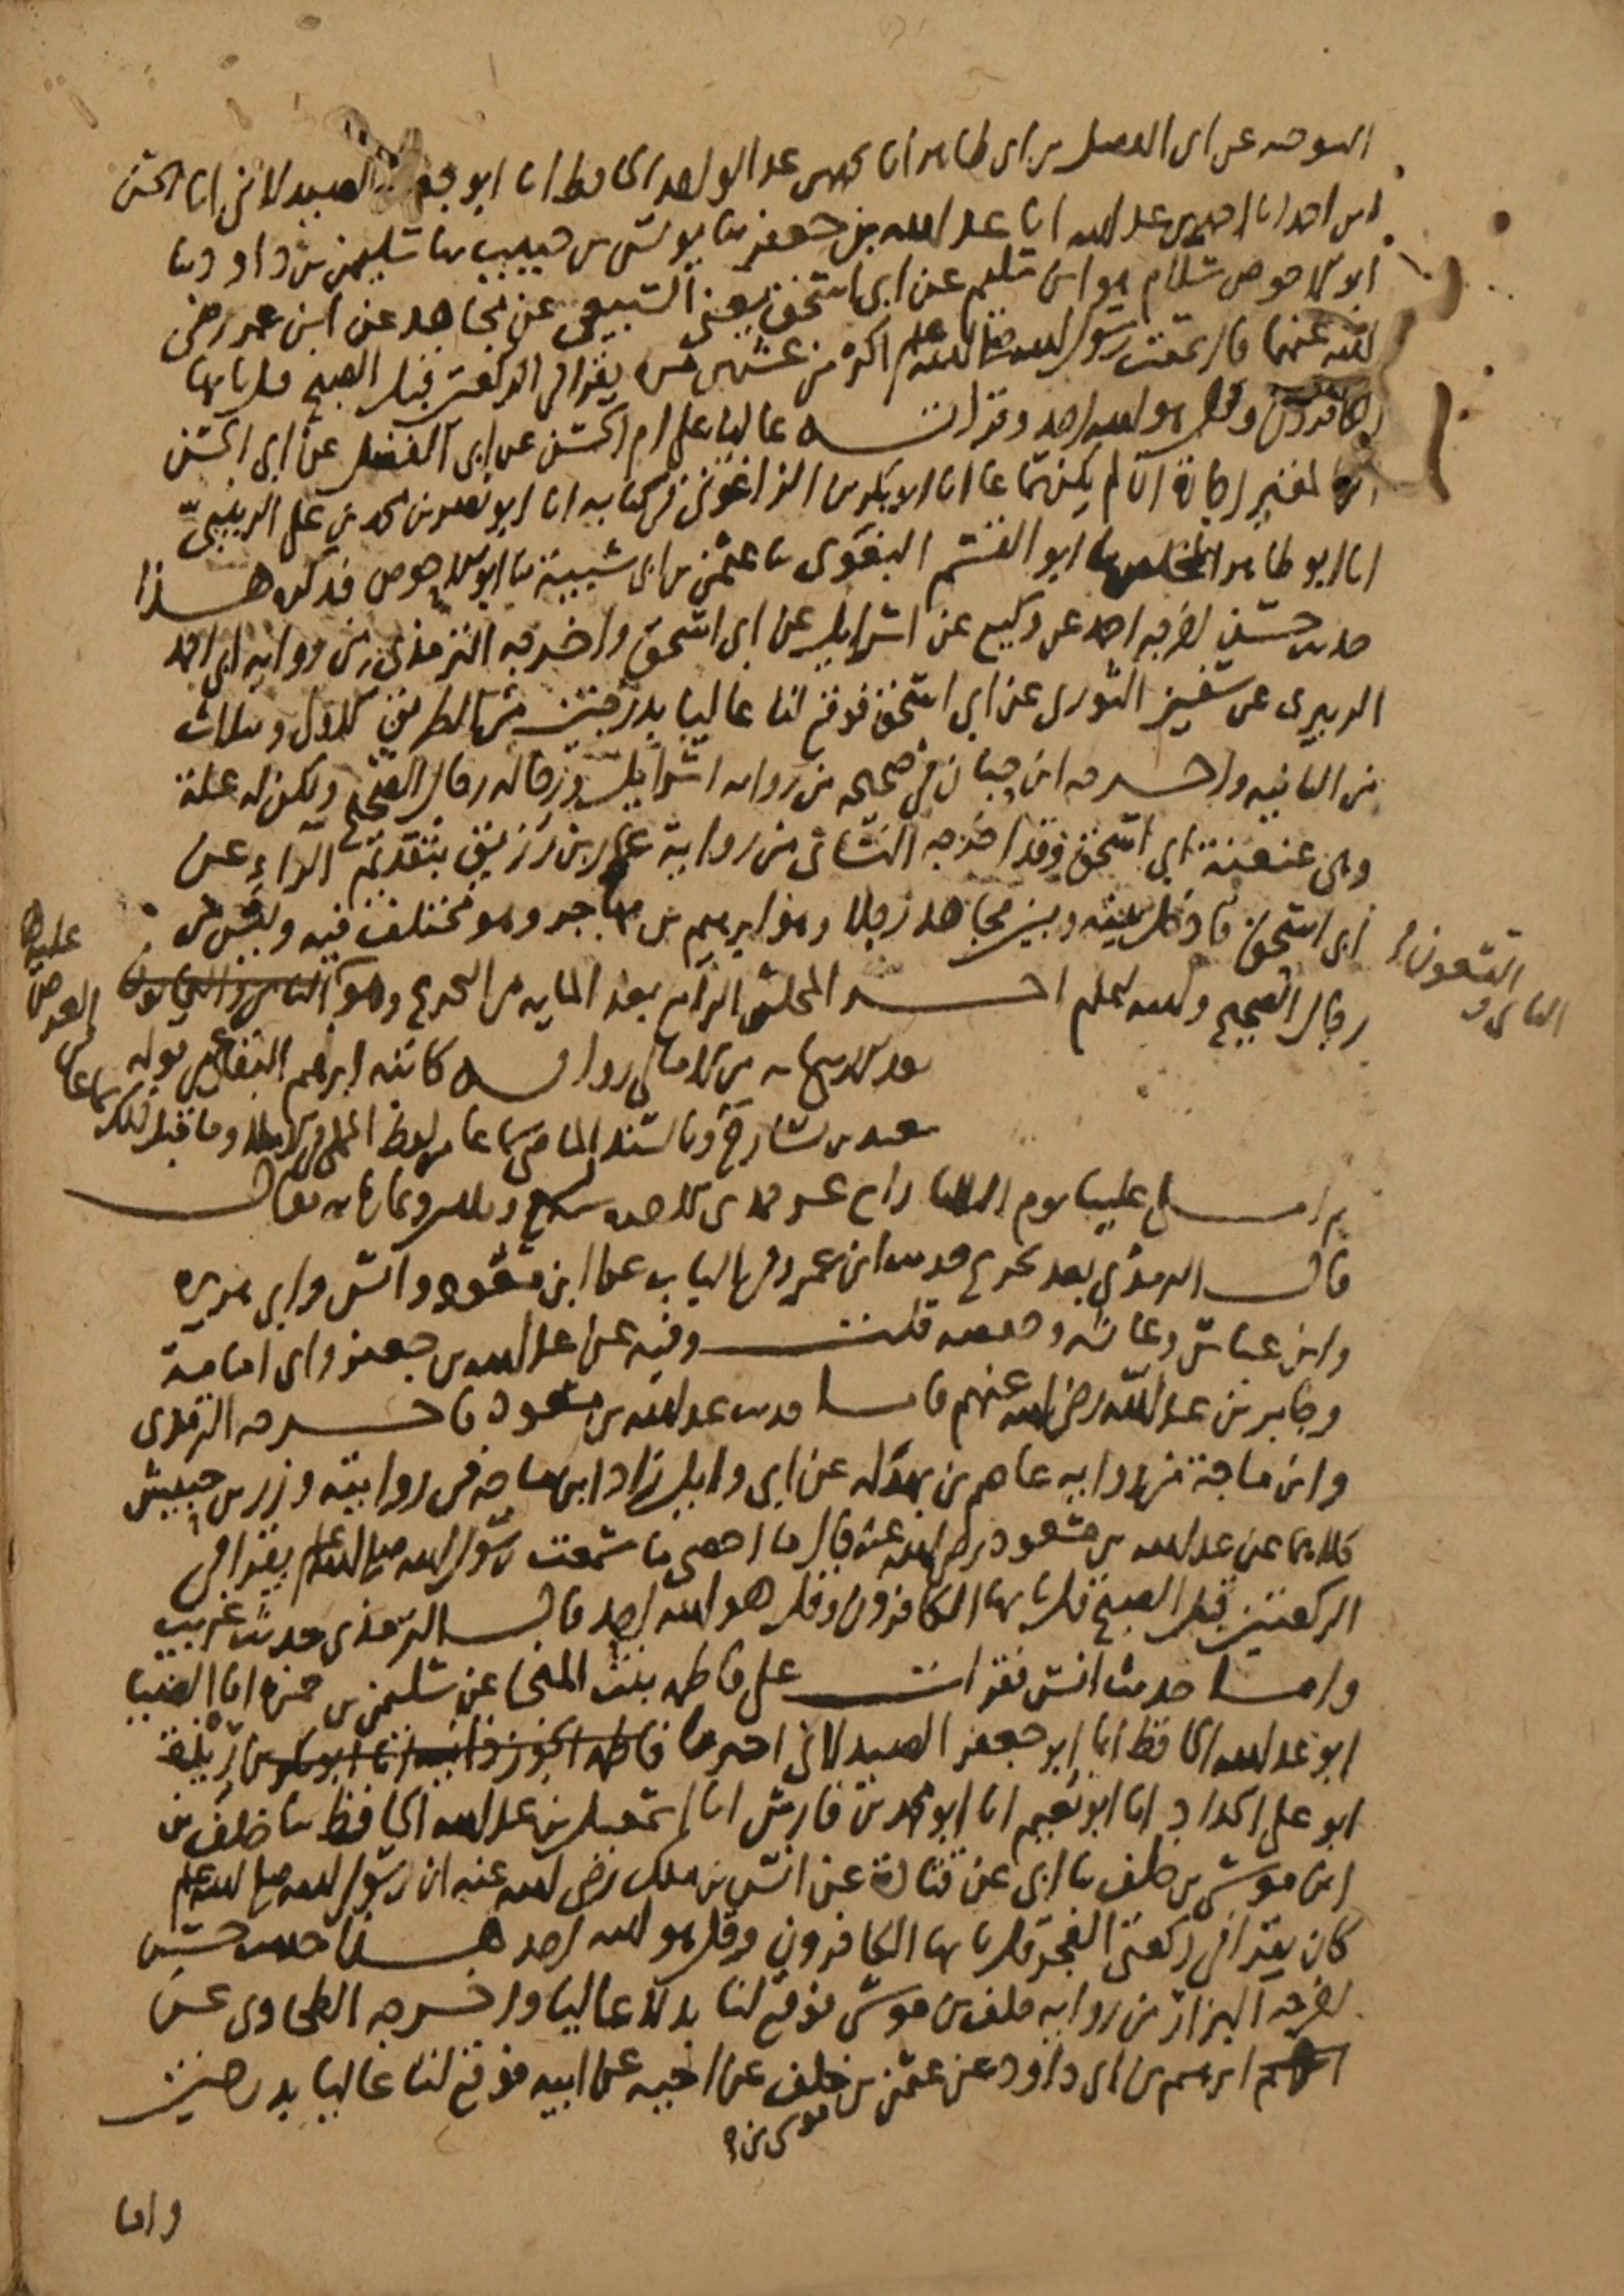 التنوخيه عن ابى الفضل بن ابى طاهر انا محمد بن عبد الواحد الحافظ انا ابو جعفر الصيدلانى انا الحسن
ابن احمد انا احمد بن عبد الله انا عبد الله بن جعفر ثنا يونس بن حبيب ثنا سليمن بن داود ثنا
ابو الاحوص سلام هو ابن سليم عن ابى اسحق يعنى السبيعى عن مجاهد عن ابن عمر رضى
الله عنهما قال سمعت رسول الله صلى الله عليه وسلم اكثر من عشرين مره يقرا فى الركعتين قبل الصبح قل يا ايها
الكافرون وقل هو الله احد وقراته عاليا على ام الحسن عن ابى الفضل عن ابى الحسن
ابن المقير اجازة ان لم يكن سماعا انا ابو بكر بن الزاغونى فى كتابه انا ابو نصر بن محمد بن على الزينبى
انا ابو طاهر المخلص ثنا ابو القسم البغوى ثنا عثمن بن ابى شيبة ثنا ابو الاحوص فذكره هذا
حديث حسن اخرجه احمد عن وكيع عن اسرائيل عن ابى اسحق واخرجه الترمذى من رواية ابى احمد
الزبيرى عن سفين الثورى عن ابى اسحق فوقع لنا عاليا بدرجتين من الطريق الاول وبثلاث
من الثانيه واخرجه ابن حبان فى صحيحه من رواية اسرائيل ورجاله رجال الصحيح ولكن له علة
وهى عنعنة ابى اسحق وقد اخرجه النسائى من رواية عمار بن رزيق بتقديم الراء عن
ابى اسحق فادخل بينه وبين مجاهد رجلا وهو ابرهيم بن مهاجر وهو مختلف فيه وليس من
رجال الصحيح والله اعلم اخر المجلس الرابع بعد المايه من التخريج وهو الثامن والثمانون
التسعون
الثانى و
بعد الاربعمايه من الامالى رواية كاتبه ابرهيم البقاعى قوله
عليها
العرض
من
سماعا
سعيد بن مسارح وبالسند الماضى سماعا من لفظ المملى فى الاملا وما قبل ذلك
ثم املى علينا يوم الثلثا رابع عشر جمادى الاخره سنة سبع وثلثين وثمان مايه فقال
قال الترمذى بعد تخريج حديث ابن عمر وفى الباب عن ابن مسعود وانس وابى هريره
وابن عباس وعائشه وحفصه قلت وفيه عن عبد الله بن جعفر وابى امامة
وجابر بن عبد الله رضى الله عنهم فاما حديث عبد الله بن مسعود فاخرجه الترمذى
وابن ماجة من رواية عاصم بن بهدله عن ابى وايل زاد ابن ماجه فى روايته وزر بن حبيش
كلاهما عن عبد الله بن مسعود رضى الله عنه قال ما احصى ما سمعت رسول الله صلى الله عليه وسلم يقرا فى
الركعتين قبل الصبح قل يا ايها الكافرون وقل هو الله احد قال الترمذى حديث غريب
واما حديث انس فقرات على فاطمه بنت المنجا عن سليمن بن حمزه انا الضيا
ابو عبد الله الحافظ انا ابو جعفر الصيدلانى اخبرنا فاطمه الجوزذانيه انا ابو بكر بن ريذة
ابو على الحداد انا ابو نعيم انا ابو محمد بن فارس انا اسمعيل بن عبد الله الحافظ ثنا خلف بن
ابن موسى بن خلف ثنا ابى عن قتادة عن انس بن ملك رضى الله عنه ان رسول الله صلى الله عليه وسلم
كان يقرا فى ركعتى الفجر قل يا ايها الكافرون وقل هو الله احد هذا حديث حسن
اخرجه البزار من رواية خلف بن موسى فوقع لنا بدلا عاليا واخرجه الطحاوى عن
ابرهيم بن ابى داود عن عثمن بن خلف عن اخيه عن ابيه فوقع لنا عاليا بدرجتين
موسى بن
واما